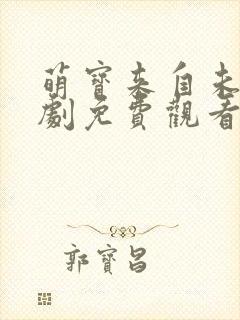 萌寶來自未
劇免費觀看
郭寶昌